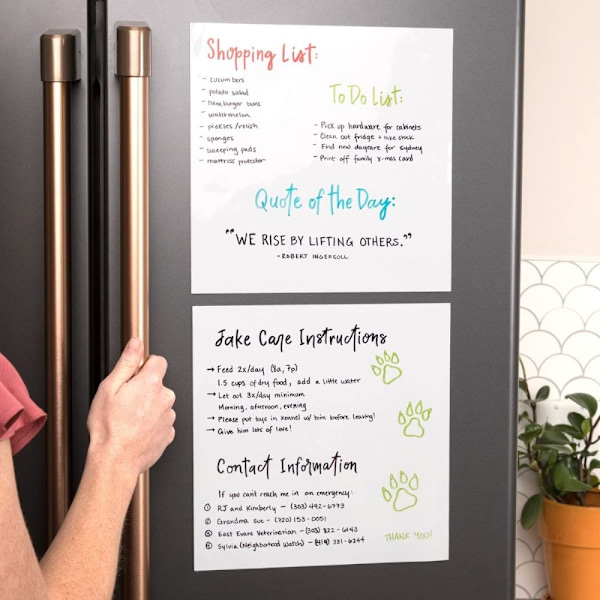 Shopping List:
- cucumbers
- potato salad
- hamburger buns
- watermelon
- pickles/relish
- sponges
- sweeping pads
- mattress protector
To Do List:
- Pick up hardware for cabinets
- Clean out fridge + take stock
- Find new daycare for sydney
- Print off family x-mas card
Quote of the Day:
"WE RISE BY LIFTING OTHERS."
- ROBERT INGERSOLL
Jake Care Instructions
→ Feed 2x/day (8a, 7p)
1.5 cups of dry food, add a little water
→ Let out 3x/day minimum
Morning, afternoon, evening
→ Please put toys in kennel w/ him before leaving!
→ Give him lots of love!
Contact Information
If you can't reach me in an emergency:
① RJ and Kimberly - (303) 492-6773
② Grandma Sue - (720) 153-0051
③ East Evans Veterinarian - (303) 822-6143
④ Sylvia (Neighborhood Watch) - (419) 231-6244
THANK YOU!